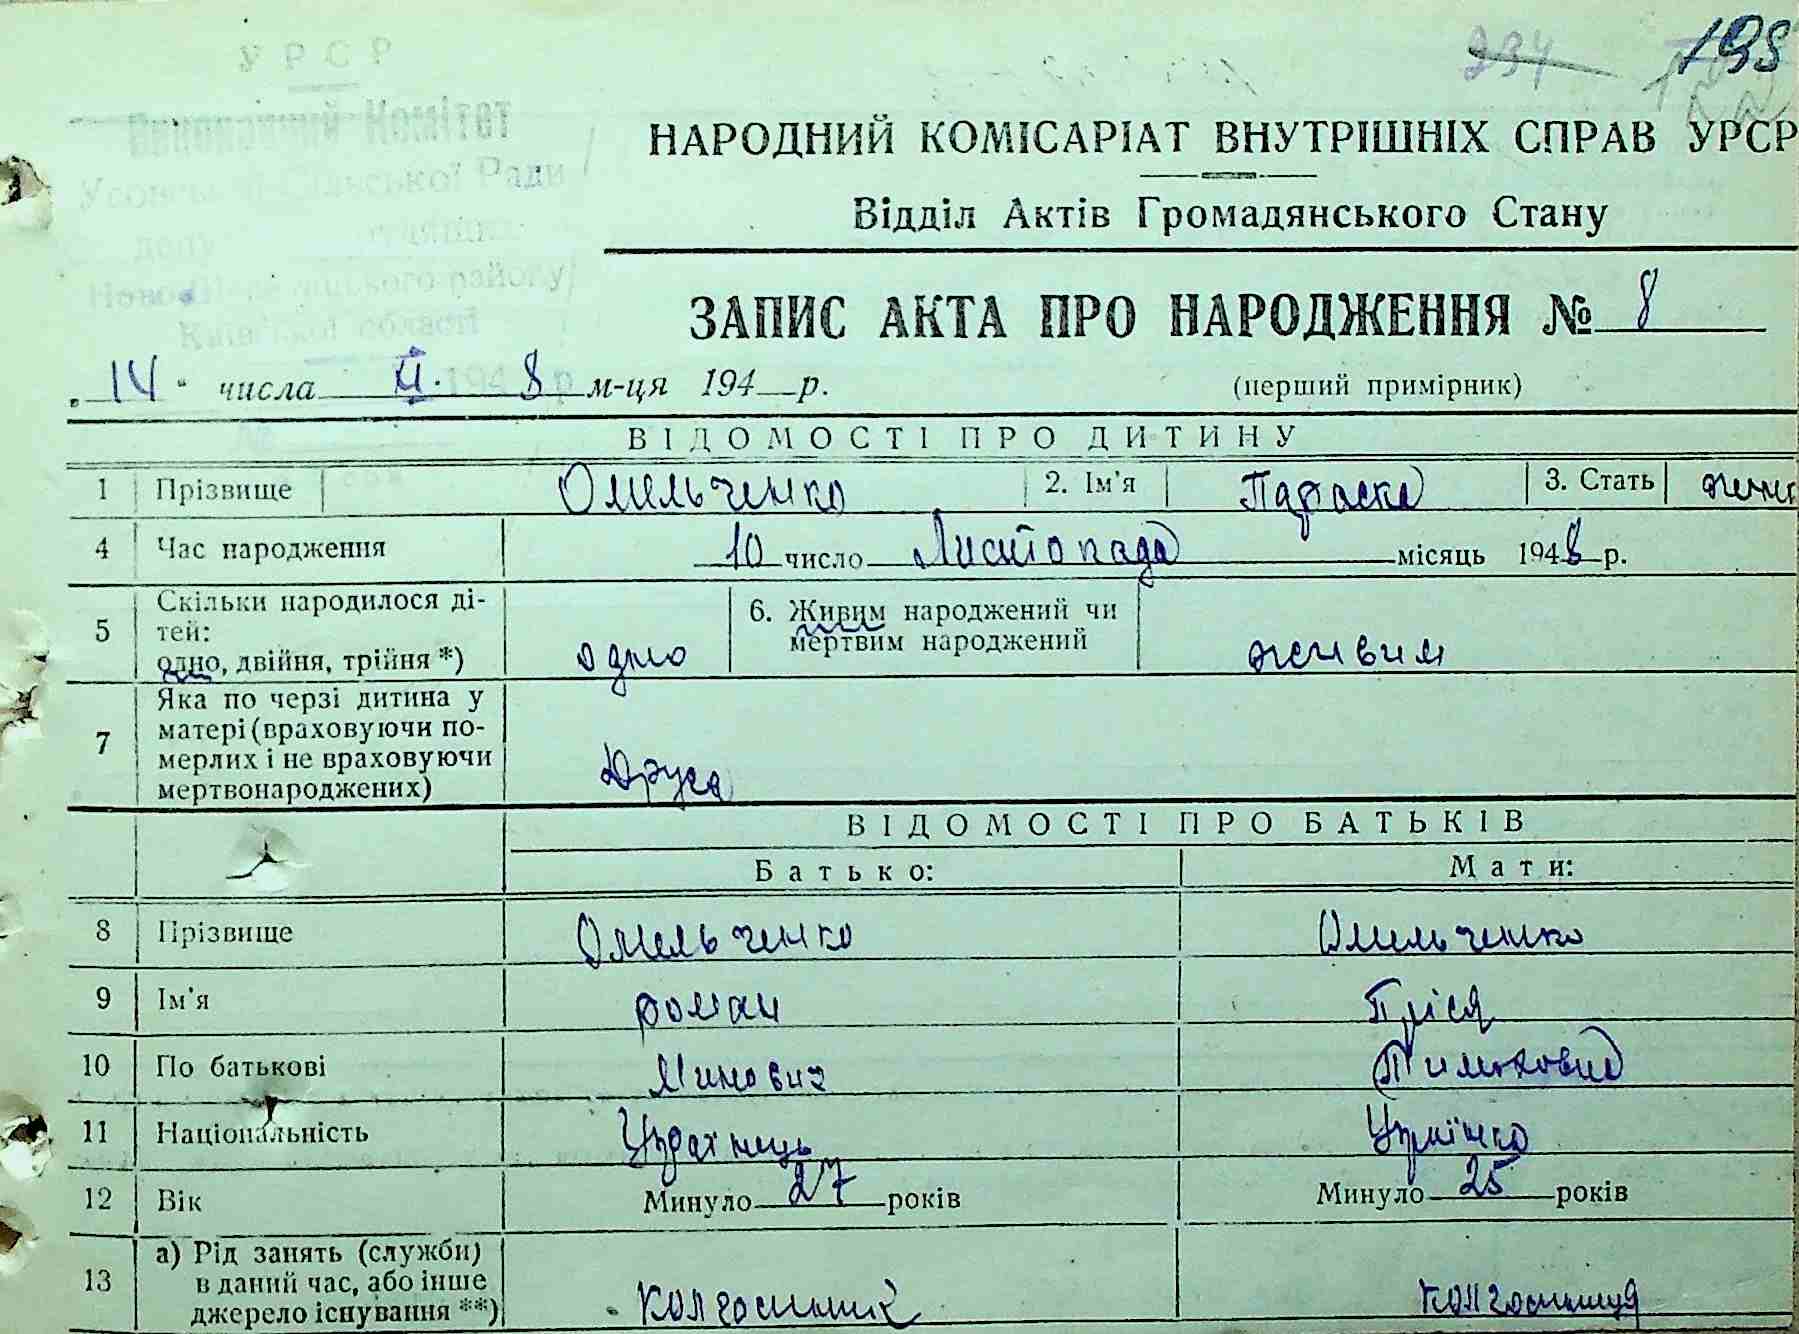 УРСР
Виконавчий Комітет
Сільської Ради
району
Київської області
234 198
НАРОДНИЙ КОМІСАРІАТ ВНУТРІШНІХ СПРАВ УРСР
Відділ Актів Громадянського Стану
ЗАПИС АКТА ПРО НАРОДЖЕННЯ № 8
„14“ числа ІІ. 8 м-ця 194 р. (перший примірник)
ВІДОМОСТІ ПРО ДИТИНУ
1 Прізвище Омельченко 2. Ім'я Параска 3. Стать
4 Час народження 10 число Листопада місяць 1948 р.
5 Скільки народилося ді-
тей:
одно, двійня, трійня *) одно
6. Живим народжений чи
мертвим народжений живим
7 Яка по черзі дитина у
матері (враховуючи по-
мерлих і не враховуючи
мертвонароджених) Друга
ВІДОМОСТІ ПРО БАТЬКІВ
Батько: Мати:
8 Прізвище Омельченко Омельченко
9 Ім'я роман Пріся
10 По батькові Минович
11 Національність
12 Вік Минуло 27 років Минуло 25 років
13 а) Рід занять (служби)
в даний час, або інше
джерело існування **) колгоспник колгоспниця